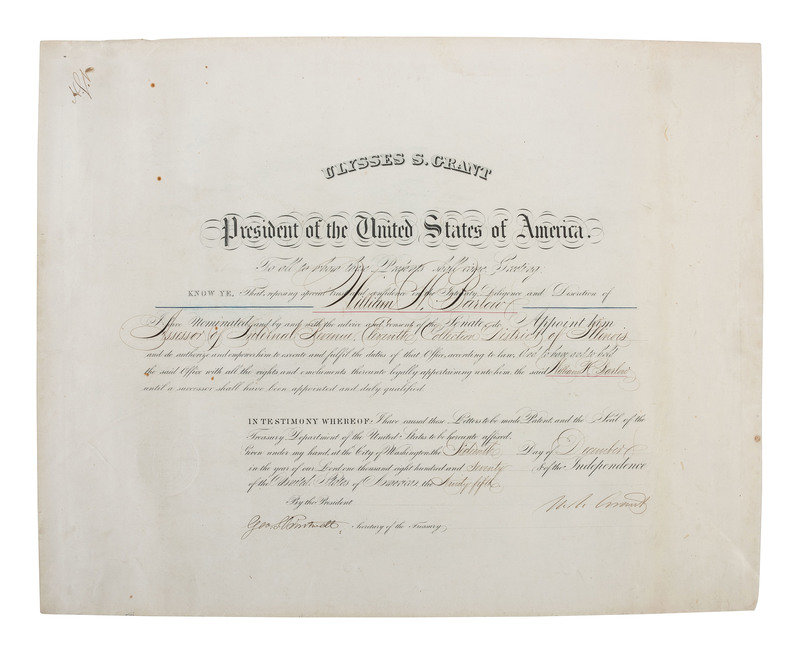 ULYSSES S. GRANT
President of the United States of America.
To all to whom these Presents shall come, Greeting:
KNOW YE, That, reposing special trust and confidence in the Integrity, Diligence and Discretion of
William H. Barlow
I have Nominated, and by and with the advice and consent of the Senate, do Appoint him
Assessor of Internal Revenue, Collection District of Illinois
and do authorize and empower him to execute and fulfil the duties of that Office, according to law, And to have and to hold
the said Office with all the rights and emoluments thereunto legally appertaining unto him, the said William H. Barlow
until a successor shall have been appointed and duly qualified.
IN TESTIMONY WHEREOF, I have caused these Letters to be made Patent, and the Seal of the
Treasury Department of the United States to be hereunto affixed.
Given under my hand, at the City of Washington, the Sixteenth Day of December
in the year of our Lord one thousand eight hundred and seventy & of the Independence
of the United States of America the Ninety fifth
By the President
U. S. Grant
Geo. S. Boutwell, Secretary of the Treasury